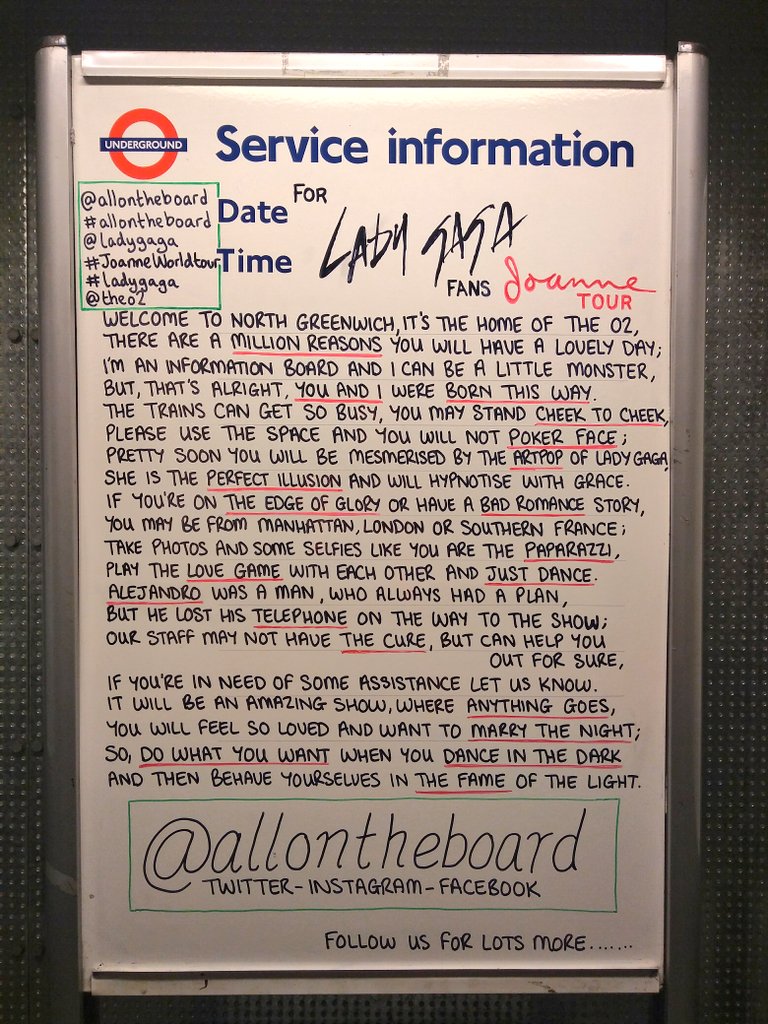 UNDERGROUND
Service information
@allontheboard
#allontheboard
@ladygaga
#JoanneWorldtour
#ladygaga
@theo2
Date FOR
Time LADY GAGA
FANS Joanne
TOUR
WELCOME TO NORTH GREENWICH, IT'S THE HOME OF THE O2,
THERE ARE A MILLION REASONS YOU WILL HAVE A LOVELY DAY;
I'M AN INFORMATION BOARD AND I CAN BE A LITTLE MONSTER,
BUT, THAT'S ALRIGHT, YOU AND I WERE BORN THIS WAY.
THE TRAINS CAN GET SO BUSY, YOU MAY STAND CHEEK TO CHEEK,
PLEASE USE THE SPACE AND YOU WILL NOT POKER FACE;
PRETTY SOON YOU WILL BE MESMERISED BY THE ARTPOP OF LADY GAGA,
SHE IS THE PERFECT ILLUSION AND WILL HYPNOTISE WITH GRACE.
IF YOU'RE ON THE EDGE OF GLORY OR HAVE A BAD ROMANCE STORY,
YOU MAY BE FROM MANHATTAN, LONDON OR SOUTHERN FRANCE;
TAKE PHOTOS AND SOME SELFIES LIKE YOU ARE THE PAPARAZZI,
PLAY THE LOVE GAME WITH EACH OTHER AND JUST DANCE.
ALEJANDRO WAS A MAN, WHO ALWAYS HAD A PLAN,
BUT HE LOST HIS TELEPHONE ON THE WAY TO THE SHOW;
OUR STAFF MAY NOT HAVE THE CURE, BUT CAN HELP YOU
OUT FOR SURE,
IF YOU'RE IN NEED OF SOME ASSISTANCE LET US KNOW.
IT WILL BE AN AMAZING SHOW, WHERE ANYTHING GOES,
YOU WILL FEEL SO LOVED AND WANT TO MARRY THE NIGHT;
SO, DO WHAT YOU WANT WHEN YOU DANCE IN THE DARK
AND THEN BEHAVE YOURSELVES IN THE FAME OF THE LIGHT.
@allontheboard
TWITTER-INSTAGRAM-FACEBOOK
FOLLOW US FOR LOTS MORE.......